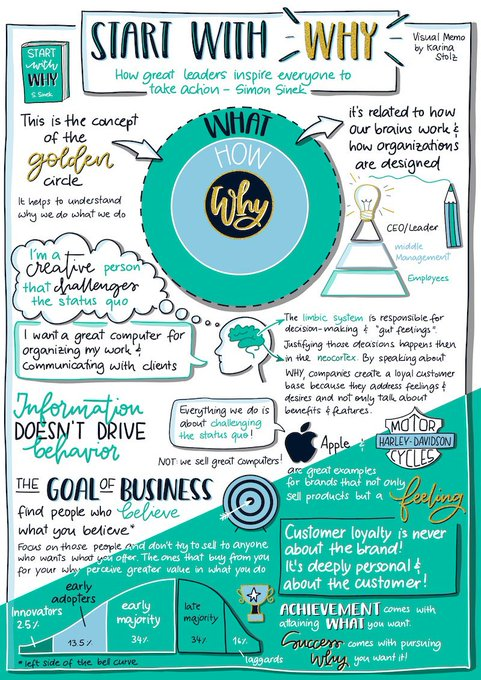 START WITH WHY
How great leaders inspire everyone to
take action - Simon Sinek
Visual Memo
by Karina
Stolz
START
with
WHY
S. Sinek
This is the concept
of the
golden
circle
It helps to understand
why we do what we do
WHAT
HOW
Why
it's related to how
our brains work &
how organizations
are designed
CEO/Leader
middle
Management
Employees
I'm a
creative person
that challenges
the status quo
I want a great computer for
organizing my work &
communicating with clients
The limbic system is responsible for
decision-making & "gut feelings".
Justifying those decisions happens then
in the neocortex. By speaking about
WHY, companies create a loyal customer
base because they address feelings &
desires and not only talk about
benefits & features.
Information
DOESN'T DRIVE
behavior
Everything we do is
about challenging
the status quo!
NOT: we sell great computers!
Apple &
MOTOR
HARLEY-DAVIDSON
CYCLES
are great examples
for brands that not only
sell products but a feeling
THE GOAL OF BUSINESS
find people who believe
what you believe.*
Focus on those people and don't try to sell to anyone
who wants what you offer. The ones that buy from you
for your why perceive greater value in what you do
Customer loyalty is never
about the brand!
It's deeply personal &
about the customer!
Innovators
2.5%
early
adopters
13.5%
early
majority
34%
late
majority
34%
16%
laggards
* left side of the bell curve
ACHIEVEMENT comes with
attaining WHAT you want.
Success comes with pursuing
Why you want it!